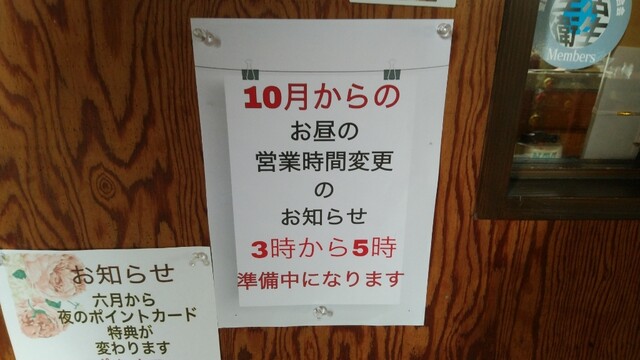 10月からの
お昼の
営業時間変更
の
お知らせ
3時から5時
準備中になります
お知らせ
六月から
夜のポイントカード
特典が
変わります
Members